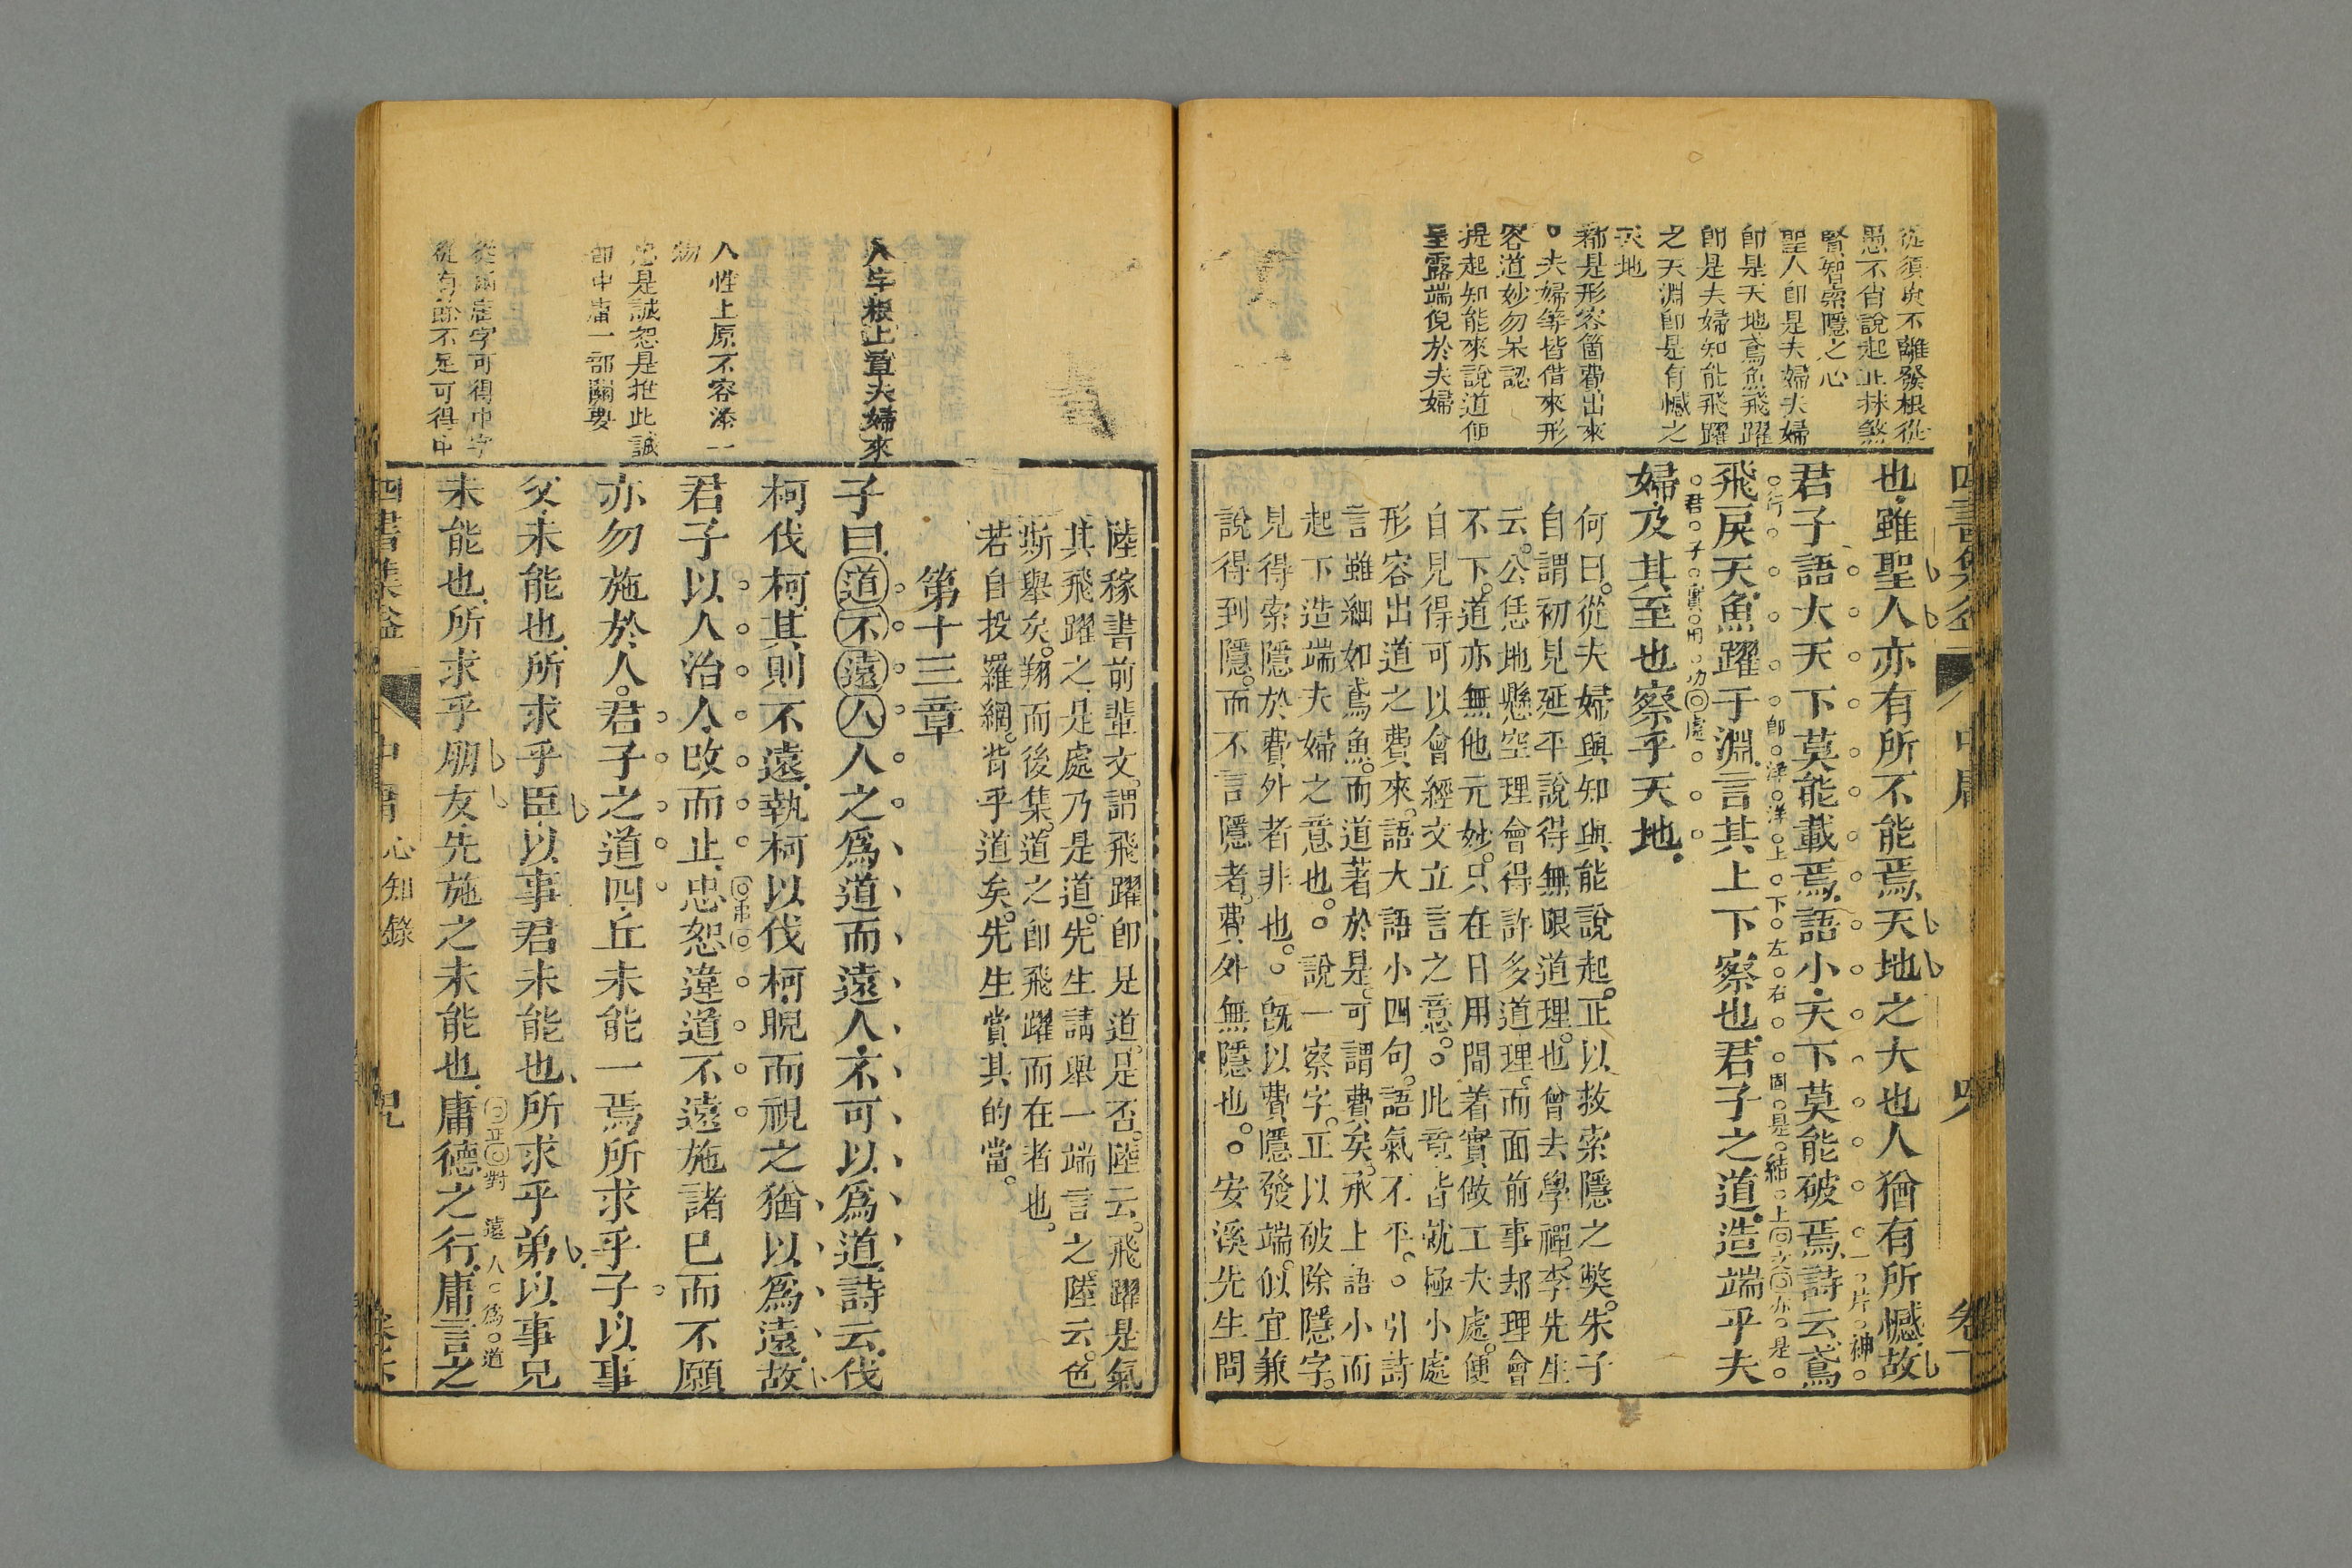 從須臾不離發根從
愚不肖說起止抹煞
賢智索隱之心
聖人卽是夫婦夫婦
卽是天地鳶魚飛躍
卽是夫婦知能飛躍
之天淵卽是有憾之
天地
都是形容箇費出來
夫婦等皆借來形
容道妙勿呆認
提起知能來說道便
呈露端倪於夫婦
四書集益
中庸
卷
也雖聖人亦有所不能焉天地之大也人猶有所憾故
一片神
君子語大天下莫能載焉語小天下莫能破焉詩云鳶
行 卽洋洋上下左右 固是結上文亦是
飛戾天魚躍于淵言其上下察也君子之道造端乎夫
君子實用功處
婦及其至也察乎天地
何曰從夫婦與知與能說起正以救索隱之獘朱子
自謂初見延平說得無限道理也曾去學禪李先生
云公恁地懸空理會得許多道理而面前事却理會
不下道亦無他元妙只在日用間着實做工夫處便
自見得可以會經文立言之意。此章皆就極小處
形容出道之費來語大語小四句語氣不平。引詩
言雖細如鳶魚而道著於是可謂費矣承上語小而
起下造端夫婦之意也。說一察字正以破除隱字
見得索隱於費外者非也。旣以費隱發端似宜兼
說得到隱而不言隱者費外無隱也。安溪先生問
陸稼書前輩文謂飛躍卽是道是否陸云飛躍是氣
其飛躍之是處乃是道先生請舉一端言之陸云色
斯舉矣翔而後集道之卽飛躍而在者也
若自投羅網背乎道矣先生賞其的當
第十三章
人字根上章夫婦來
子曰道不遠人人之爲道而遠人不可以爲道詩云伐
柯伐柯其則不遠執柯以伐柯睨而視之猶以爲遠故
人性上原不容添一
物
君子以人治人改而止忠恕違道不遠施諸己而不願
忠是誠恕是推此誠
卽中庸一部關要
亦勿施於人君子之道四丘未能一焉所求乎子以事
父未能也所求乎臣以事君未能也所求乎弟以事兄
正對 遠人爲道
從兩庸字可得中字
從有餘不足可得中
未能也所求乎朋友先施之未能也庸德之行庸言之
四書集益
中庸
心知錄